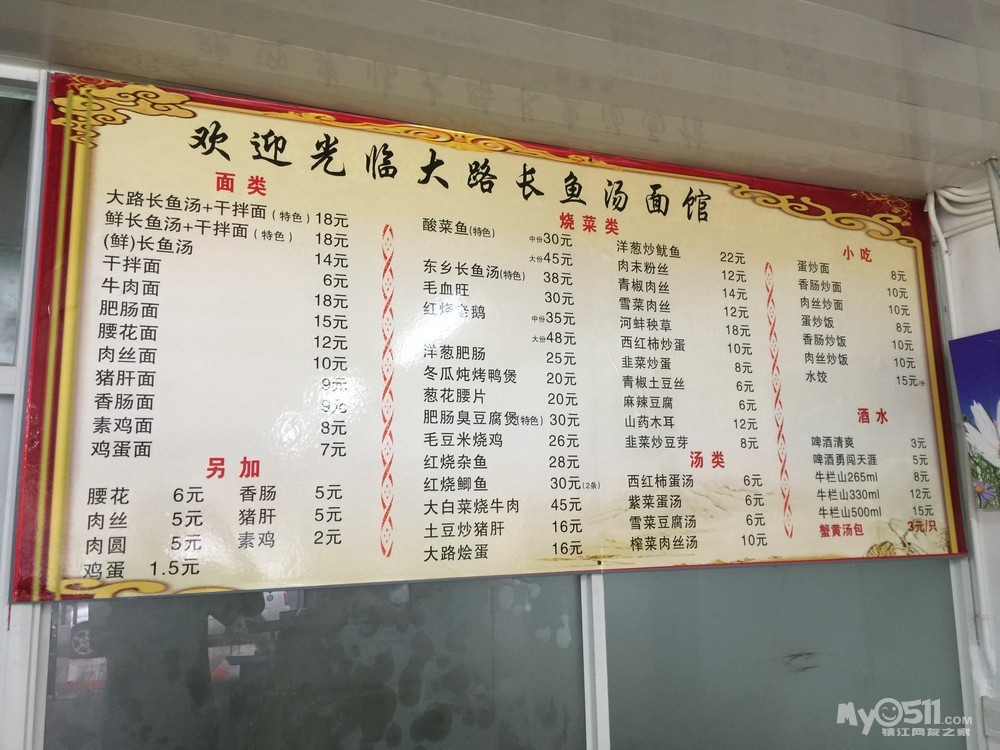 欢迎光临大路长鱼汤面馆
面类
大路长鱼汤+干拌面(特色) 18元
鲜长鱼汤+干拌面(特色) 18元
(鲜)长鱼汤 14元
干拌面 6元
牛肉面 18元
肥肠面 15元
腰花面 12元
肉丝面 10元
猪肝面 9元
香肠面 9元
素鸡面 8元
鸡蛋面 7元
另加
腰花 6元 香肠 5元
肉丝 5元 猪肝 5元
肉圆 5元 素鸡 2元
鸡蛋 1.5元
烧菜类
酸菜鱼(特色) 中份30元
大份45元
东乡长鱼汤(特色) 38元
毛血旺 30元
红烧老鹅 中份35元
大份48元
洋葱肥肠 25元
冬瓜炖烤鸭煲 20元
葱花腰片 20元
肥肠臭豆腐煲(特色) 30元
毛豆米烧鸡 26元
红烧杂鱼 28元
红烧鲫鱼 30元(2条)
大白菜烧牛肉 45元
土豆炒猪肝 16元
大路烩蛋 16元
洋葱炒鱿鱼 22元
肉末粉丝 12元
青椒肉丝 14元
雪菜肉丝 12元
河蚌秧草 18元
西红柿炒蛋 10元
韭菜炒蛋 8元
青椒土豆丝 6元
麻辣豆腐 6元
山药木耳 12元
韭菜炒豆芽 8元
汤类
西红柿蛋汤 6元
紫菜蛋汤 6元
雪菜豆腐汤 6元
榨菜肉丝汤 10元
小吃
蛋炒面 8元
香肠炒面 10元
肉丝炒面 10元
蛋炒饭 8元
香肠炒饭 10元
肉丝炒饭 10元
水饺 15元/份
酒水
啤酒清爽 3元
啤酒勇闯天涯 5元
牛栏山265ml 8元
牛栏山330ml 12元
牛栏山500ml 15元
蟹黄汤包 3元/只
My0511.COM
镇江网友之家